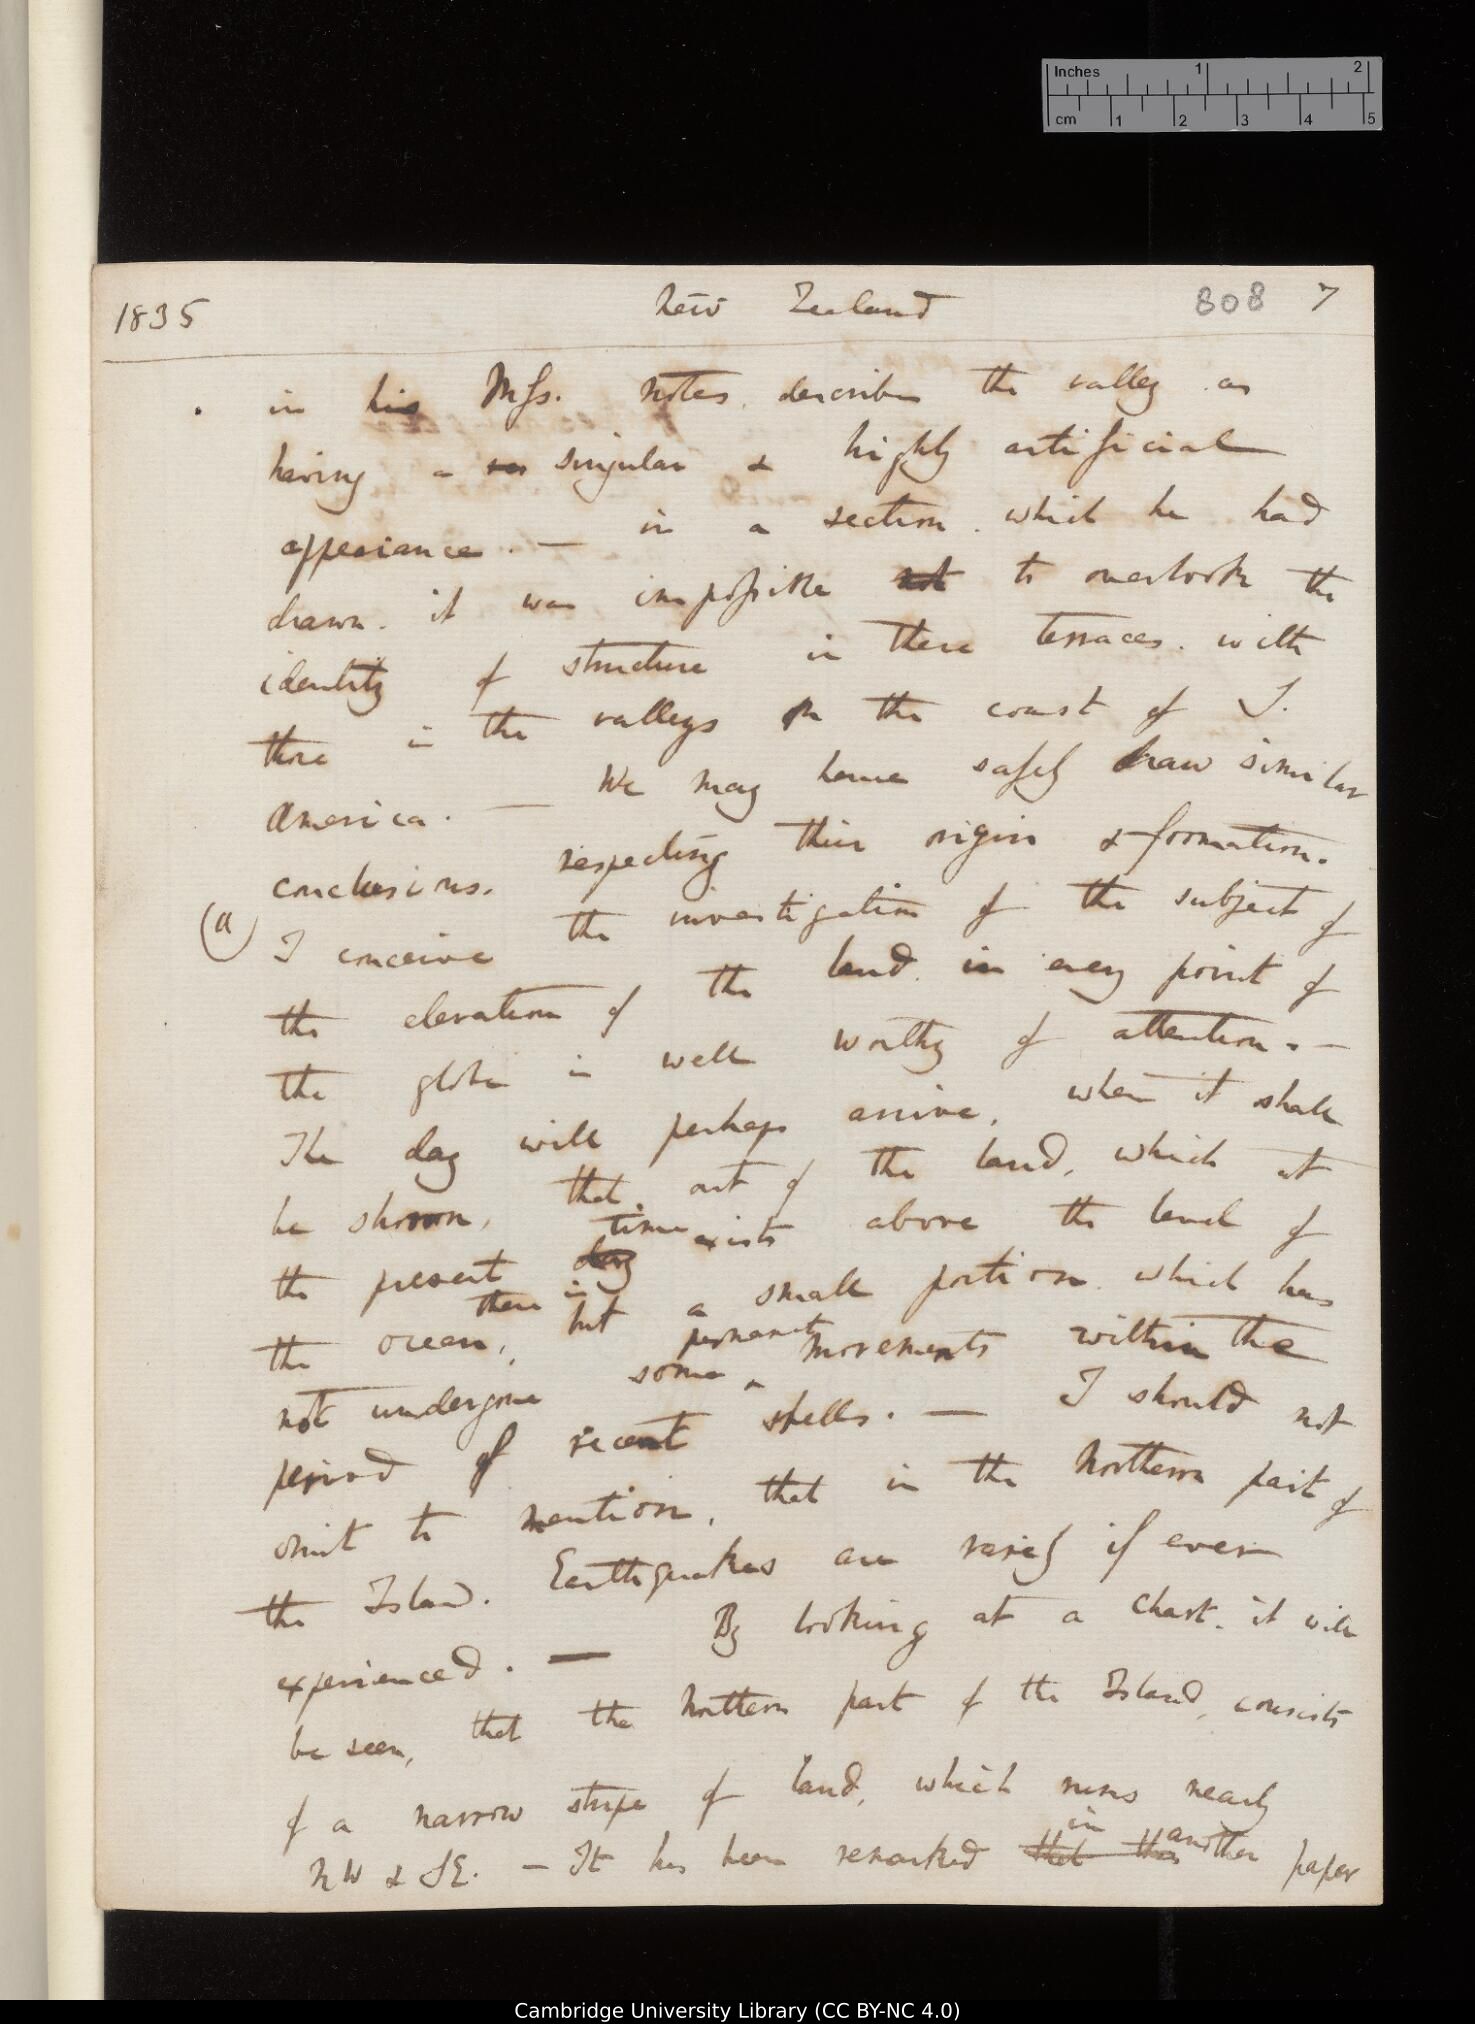 Inches 1 2
cm 1 2 3 4 5
1835 New Zealand 808 7
in his Mss. notes, describes the valley as
having a singular & highly artificial
appearance. — in a section which he had
drawn. it was impossible not to overlook the
identity of structure in these terraces. with
those in the valleys on the coast of S.
America. — We may hence safely draw similar
conclusions. respecting their origin & formation.
(a) I conceive the investigation of the subject of
the elevation of the land in every point of
the globe is well worthy of attention. —
The day will perhaps arrive, when it shall
be shown, that, out of the land, which at
the present day time exists above the level of
the ocean, there is but a small portion which has
not undergone some permanent movements within the
period of recent shells. — I should not
omit to mention, that in the Northern part of
the Island. Earthquakes are rarely if ever
experienced. — By looking at a chart. it will
be seen, that the Northern part of the Island, consists
of a narrow stripe of land, which runs nearly
NW & SE. — It has been remarked that this in another paper
Cambridge University Library (CC BY-NC 4.0)